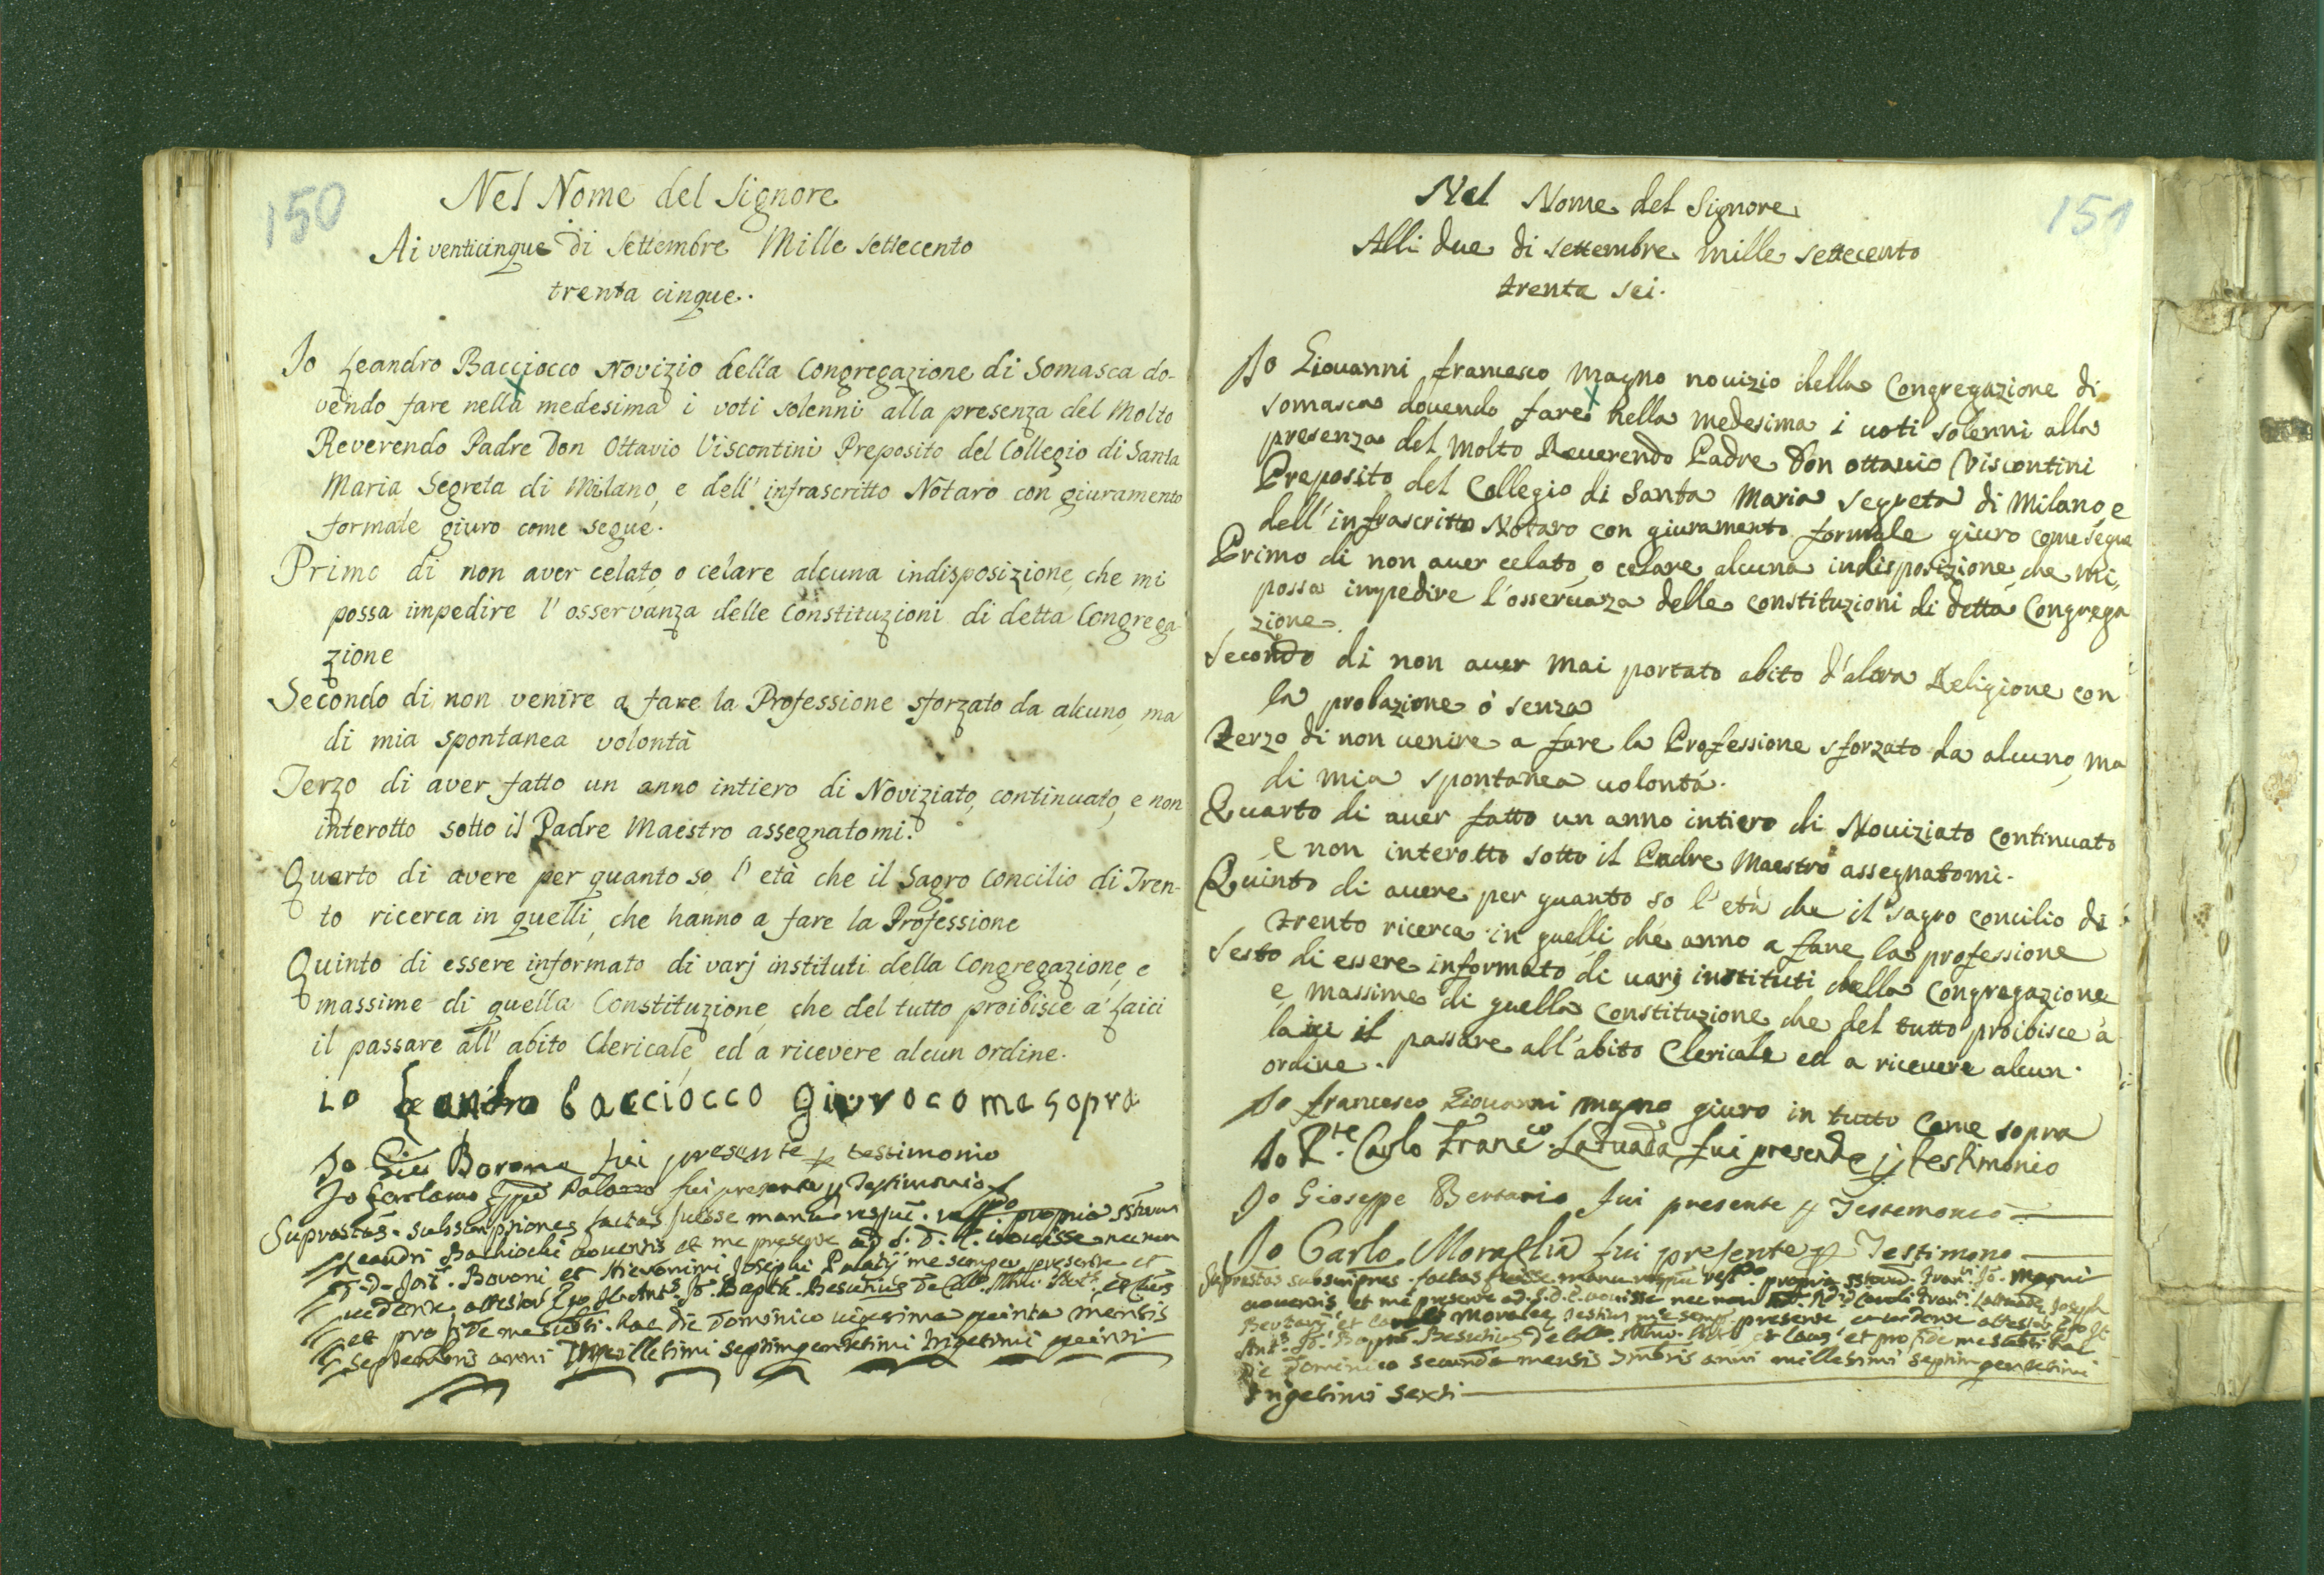 150
Nel Nome del Signore
Ai venticinque di Settembre Mille settecento
trenta cinque.
Io Leandro Bacciocco Novizio della Congregazione di Somasca do-
vendo fare nella medesima i voti solenni alla presenza del Molto
Reverendo Padre Don Ottavio Viscontini Preposito del Collegio di Santa
Maria Segreta di Milano, e dell' infrascritto Notaro con giuramento
formale giuro come segue.
Primo di non aver celato, o celare alcuna indisposizione, che mi
possa impedire l' osservanza delle Constituzioni di detta Congrega-
zione
Secondo di non venire a fare la Professione sforzato da alcuno, ma
di mia spontanea volontà
Terzo di aver fatto un anno intiero di Noviziato, continuato, e non
interotto sotto il Padre Maestro assegnatomi.
Quarto di avere per quanto so l' età che il Sagro Concilio di Tren-
to ricerca in quelli, che hanno a fare la Professione
Quinto di essere informato di varj instituti della Congregazione, e
massime di quella Constituzione, che del tutto proibisce a' Laici
il passare all' abito Clericale, ed a ricevere alcun ordine.
io Leandro bacciocco giuro come sopra
Io Gio Borone fui presente p testimonio
Io Gerolamo Gppe Palazzo fui presente p Testimonio
subscriptiones factas fuisse manu propria
Leandri Bachiochi noventis et me presente ad S. D. E. novisse necnon
D. D. Bovoni et Hieronimi Josephi Palatij me semper presente et
vidente attestor Ego
et pro fide me subsi. hac die Dominico vigesima quinta mensis
septembris anni Millesimi septingentesimi trigesimi quinti
151
Nel Nome del Signore
Alli due di settembre mille settecento
trenta sei.
Io Giouanni francesco Magno nouizio della Congregazione di
somasca douendo fare nella medesima i uoti solenni alla
presenza del Molto Reuerendo Padre Don ottauio Viscontini
Preposito del Collegio di Santa Maria Segreta di Milano, e
dell' infrascritto Notaro con giuramento formale giuro come segue
Primo di non auer celato, o celare alcuna indisposizione, che mi,
possa impedire l'osseruaza delle constituzioni di detta Congrega
zione.
Secondo di non auer mai portato abito d'altra Religione con
la probazione ò senza
Terzo di non uenire a fare la Professione sforzato da alcuno, ma
di mia spontanea uolontà.
Quarto di auer fatto un anno intiero di Nouiziato continuato
e non interotto sotto il Padre Maestro assegnatomi.
Quinto di auere per quanto so l'età che il sagro concilio di
trento ricerca in quelli che anno a fare la professione
Sesto di essere informato di uarj instituti della Congregazione
e massime di quella Constituzione che del tutto proibisce a
laici il passare all'abito Clericale ed a riceuere alcun
ordine.
Io francesco Giouanni magno giuro in tutto come sopra
Io P.te Carlo Franco. Latuada fui presente p testimonio
Io Gioseppe Bertario fui presente p Testemonio
Io Carlo Moraglia fui presente p Testimono
factas fuisse manu propria Magni
nouentis et me presente ad S. D. E. nouisse nec non
presente
et pro fide me
Die Dominico secunda mensis anni millesimi septingentesimi
trigesimi sexti